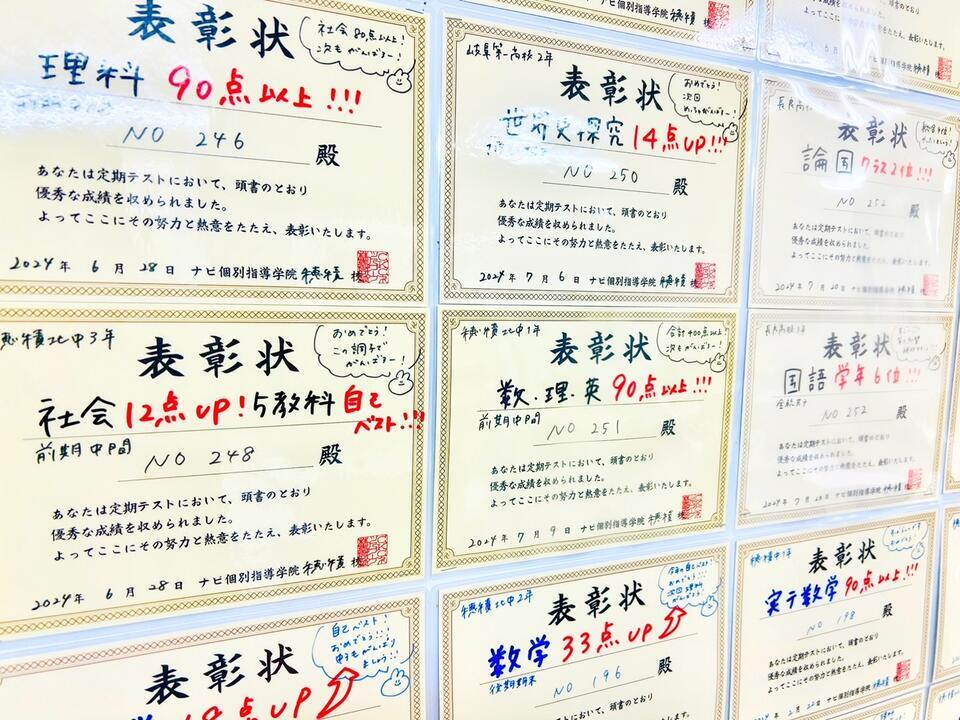 表彰状
社会80点以上!
次もがんばるー!
理科 90点以上!!!
NO 246 殿
あなたは定期テストにおいて、頭書のとおり
優秀な成績を収められました。
よってここにその努力と熱意をたたえ、表彰いたします。
2024年 6月 28日 ナビ個別指導学院 穂積 校
岐阜第一高校2年
表彰状
おめでとう!
次回
めっちゃがんばるー!
世界史探究 14点UP!!!
NO 250 殿
あなたは定期テストにおいて、頭書のとおり
優秀な成績を収められました。
よってここにその努力と熱意をたたえ、表彰いたします。
2024年 7月 6日 ナビ個別指導学院 穂積 校
表彰状
論国 クラス2位!!!
NO 252 殿
あなたは定期テストにおいて、頭書のとおり
優秀な成績を収められました。
よってここにその努力と熱意をたたえ、表彰いたします。
2024年 7月 20日 ナビ個別指導学院 穂積
穂積北中3年
表彰状
おめでとう!
この調子で
がんばるー!
社会 12点UP! 5教科 自己ベスト!!!
前期中間
NO 248 殿
あなたは定期テストにおいて、頭書のとおり
優秀な成績を収められました。
よってここにその努力と熱意をたたえ、表彰いたします。
2024年 6月 28日 ナビ個別指導学院 穂積 校
穂積北中1年
表彰状
合計400点以上!
次もがんばるー!
数・理・英 90点以上!!!
前期中間
NO 251 殿
あなたは定期テストにおいて、頭書のとおり
優秀な成績を収められました。
よってここにその努力と熱意をたたえ、表彰いたします。
2024年 7月 9日 ナビ個別指導学院 穂積 校
表彰状
国語 学年6位!!!
NO 252 殿
あなたは定期テストにおいて、頭書のとおり
優秀な成績を収められました。
よってここにその努力と熱意をたたえ、表彰いたします。
2024年 7月 20日 ナビ個別指導学院 穂積 校
表彰状
自己ベスト!
おめでとう!!!
点UP
穂積北中2年
表彰状
数学 33点UP
後期期末
NO 196 殿
あなたは定期テストにおいて、頭書のとおり
優秀な成績を収められました。
穂積中1年
表彰状
実テ数学 90点以上!!!
NO 198 殿
あなたは定期テストにおいて、頭書のとおり
優秀な成績を収められました。
よってここにその努力と熱意をたたえ、表彰いたします。
2024年 2月 22日 ナビ個別指導学院 穂積 校